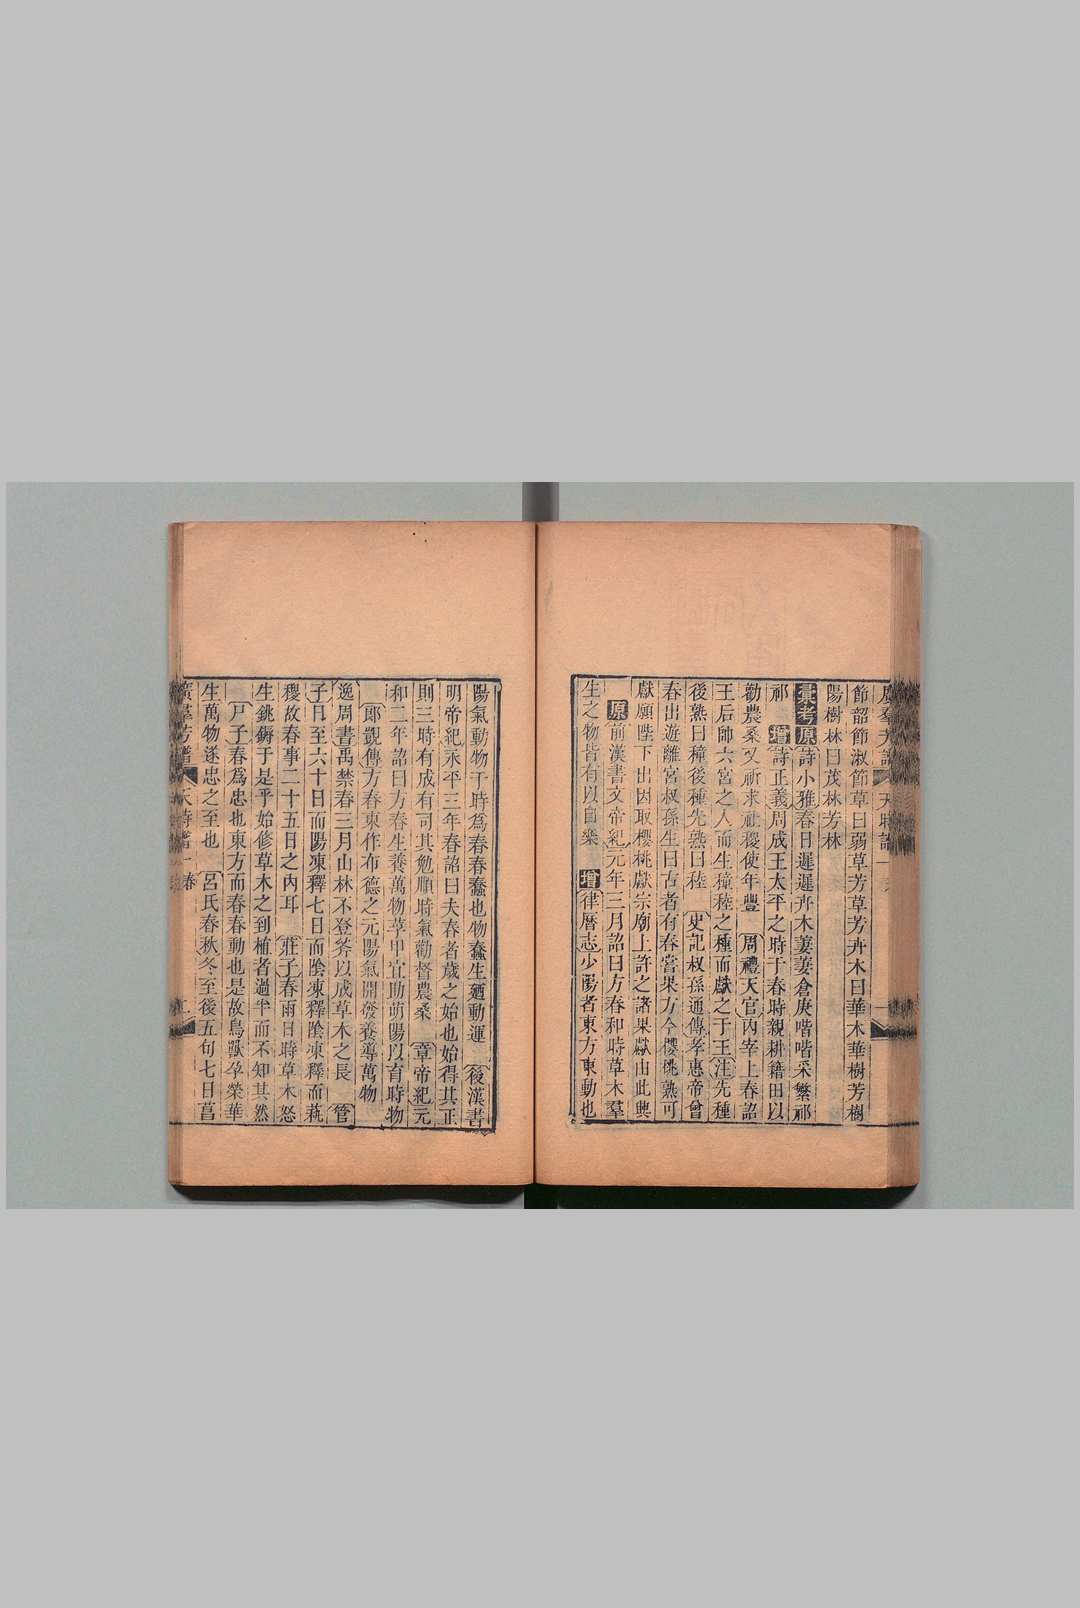 節韶節淑節草曰弱草芳草芳卉木曰華木華樹芳樹
陽樹林曰茂林芳林
彙考原詩小雅春日遲遲卉木萋萋倉庚喈喈采蘩祁
祁 增詩正義周成王太平之時于春時親耕籍田以
勸農桑又祈求社稷使年豐 周禮天官內宰上春詔
王后帥六宮之人而生穜稑之種而獻之于王注先種
後熟曰穜後種先熟曰稑 史記叔孫通傳孝惠帝曾
春出遊離宮叔孫生曰古者有春嘗果方今櫻桃熟可
獻願陛下出因取櫻桃獻宗廟上許之諸果獻由此興
原前漢書文帝紀元年三月詔曰方春和時草木羣
生之物皆有以自樂 增律曆志少陽者東方東動也
陽氣動物于時爲春春蠢也物蠢生廼動運 後漢書
明帝紀永平三年春詔曰夫春者歲之始也始得其正
則三時有成有司其勉順時氣勸督農桑 章帝紀元
和二年詔曰方春生養萬物莩甲宜助萌陽以育時物
郞顗傳方春東作布德之元陽氣開發養導萬物
逸周書禹禁春三月山林不登斧以成草木之長 管
子日至六十日而陽凍釋七日而陰凍釋陰凍釋而蓺
稷故春事二十五日之內耳 莊子春雨日時草木怒
生銚鎒于是乎始修草木之到植者過半而不知其然
尸子春爲忠也東方而春春動也是故鳥獸孕榮華
生萬物遂忠之至也 呂氏春秋冬至後五旬七日菖
廣羣芳譜 天時譜一 春 二